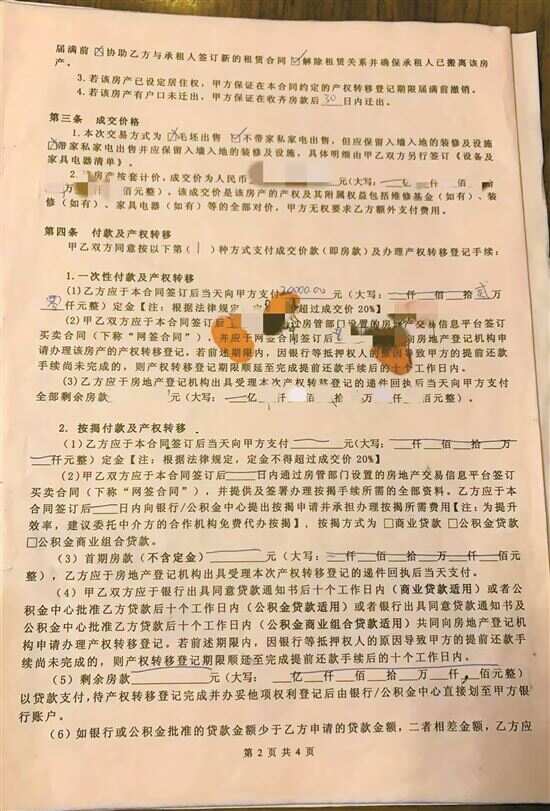 届满前☑协助乙方与承租人签订新的租赁合同☑解除租赁关系并确保承租人已搬离该房
产。
3.若该房产已设定居住权，甲方保证在本合同约定的产权转移登记期限届满前撤销。
4.若该房产有户口未迁出，甲方保证在收齐房款后30日内迁出。
第三条 成交价格
1.本次交易方式为☑毛坯出售 ☑不带家私家电出售，但应保留入墙入地的装修及设施
☑带家私家电出售并应保留入墙入地的装修及设施，具体明细由甲乙双方另行签订《设备及
家具电器清单》。
房产按套计价，成交价为人民币 元(大写： 仟 佰 拾
万 佰元整)。该成交价是该房产的产权及其附属权益包括维修基金（如有）、装
修（如有）、家具电器（如有）等的全部对价，甲方无权要求乙方额外支付费用。
第四条 付款及产权转移
甲乙双方同意按以下第（1）种方式支付成交价款（即房款）及办理产权转移登记手续：
1.一次性付款及产权转移
(1)乙方应于本合同签订后当天向甲方支付20000.00元(大写：仟 佰 拾贰万
零仟元整）定金【注：根据法律规定，定 超过成交价 20%】
(2)甲乙双方应于本合同签订后 过房管部门设置的房地产交易信息平台签订
买卖合同（下称“网签合同”），并应于网签合同签订后 向房地产登记机构申
请办理该房产的产权转移登记。若前述期限内，因银行等抵押权人的原因导致甲方的提前还款
手续尚未完成的，则产权转移登记期限顺延至完成提前还款手续后的十个工作日内。
(3)乙方应于房地产登记机构出具受理本次产权转移登记的递件回执后当天向甲方支付
全部剩余房款 元(大写： 亿 仟 佰 拾 万 仟 佰元整）。
2. 按揭付款及产权转移
(1)乙方应于本合同签订后当天向甲方支付 元(大写： 仟 佰 拾 万
仟元整）定金【注：根据法律规定，定金不得超过成交价 20%】
(2)甲乙双方应于本合同签订后 日内通过房管部门设置的房地产交易信息平台签订
买卖合同（下称“网签合同”），并提供及签署办理按揭手续所需的全部资料。乙方应于本
合同签订后 日内向银行/公积金中心提出按揭申请并承担办理按揭所需费用【注：为提升
效率，建议委托中介方的合作机构免费代办按揭】，按揭方式为□商业贷款 □公积金贷款
□公积金商业组合贷款。
(3) 首期房款（不含定金） 元（大写： 仟 佰 拾 万 仟 佰元
整），乙方应于房地产登记机构出具受理本次产权转移登记的递件回执后当天支付。
(4) 甲乙双方应于银行出具同意贷款通知书后十个工作日内（商业贷款适用）或者公
积金中心批准乙方贷款后十个工作日内（公积金贷款适用）或者银行出具同意贷款通知书及
公积金中心批准乙方贷款后十个工作日内（公积金商业组合贷款适用）共同向房地产登记机
构申请办理产权转移登记。若前述期限内，因银行等抵押权人的原因导致甲方的提前还款手
续尚未完成的，则产权转移登记期限顺延至完成提前还款手续后的十个工作日内。
(5) 剩余房款 元(大写： 亿 仟 佰 拾 万 仟 佰元整)
以贷款支付，待产权转移登记完成并办妥他项权利登记后由银行/公积金中心直接划至甲方银
行账户。
(6) 如银行或公积金批准的贷款金额少于乙方申请的贷款金额，二者相差金额，乙方应
第 2 页 共 4 页